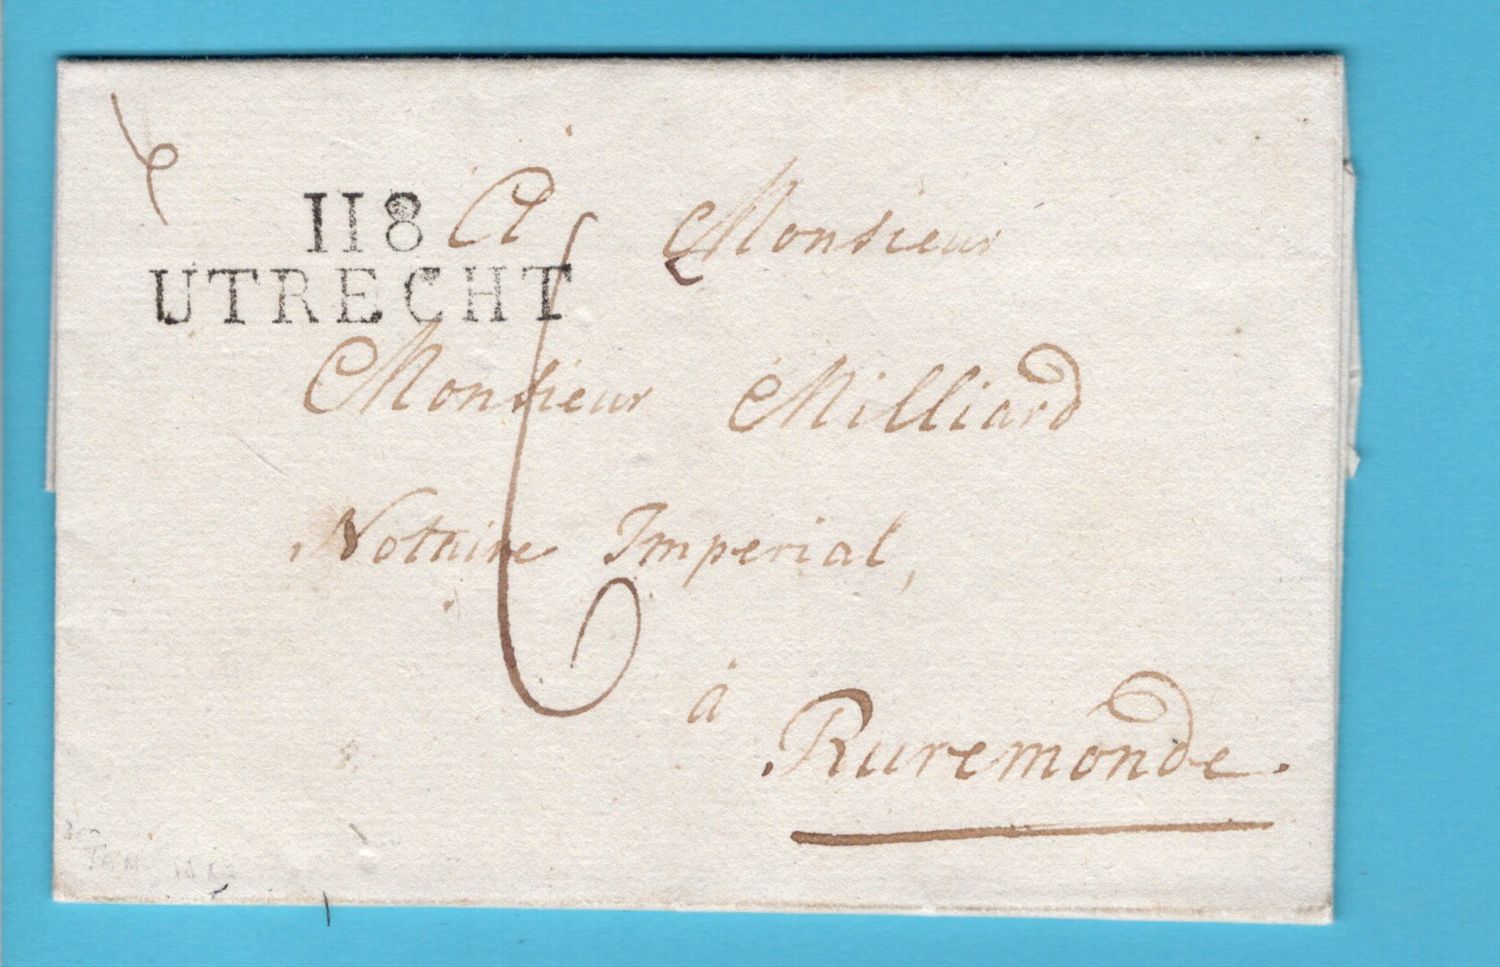 118 A Monsieur
UTRECHT
Monsieur Milliard
Notaire Imperial,
à
Ruremonde.
6